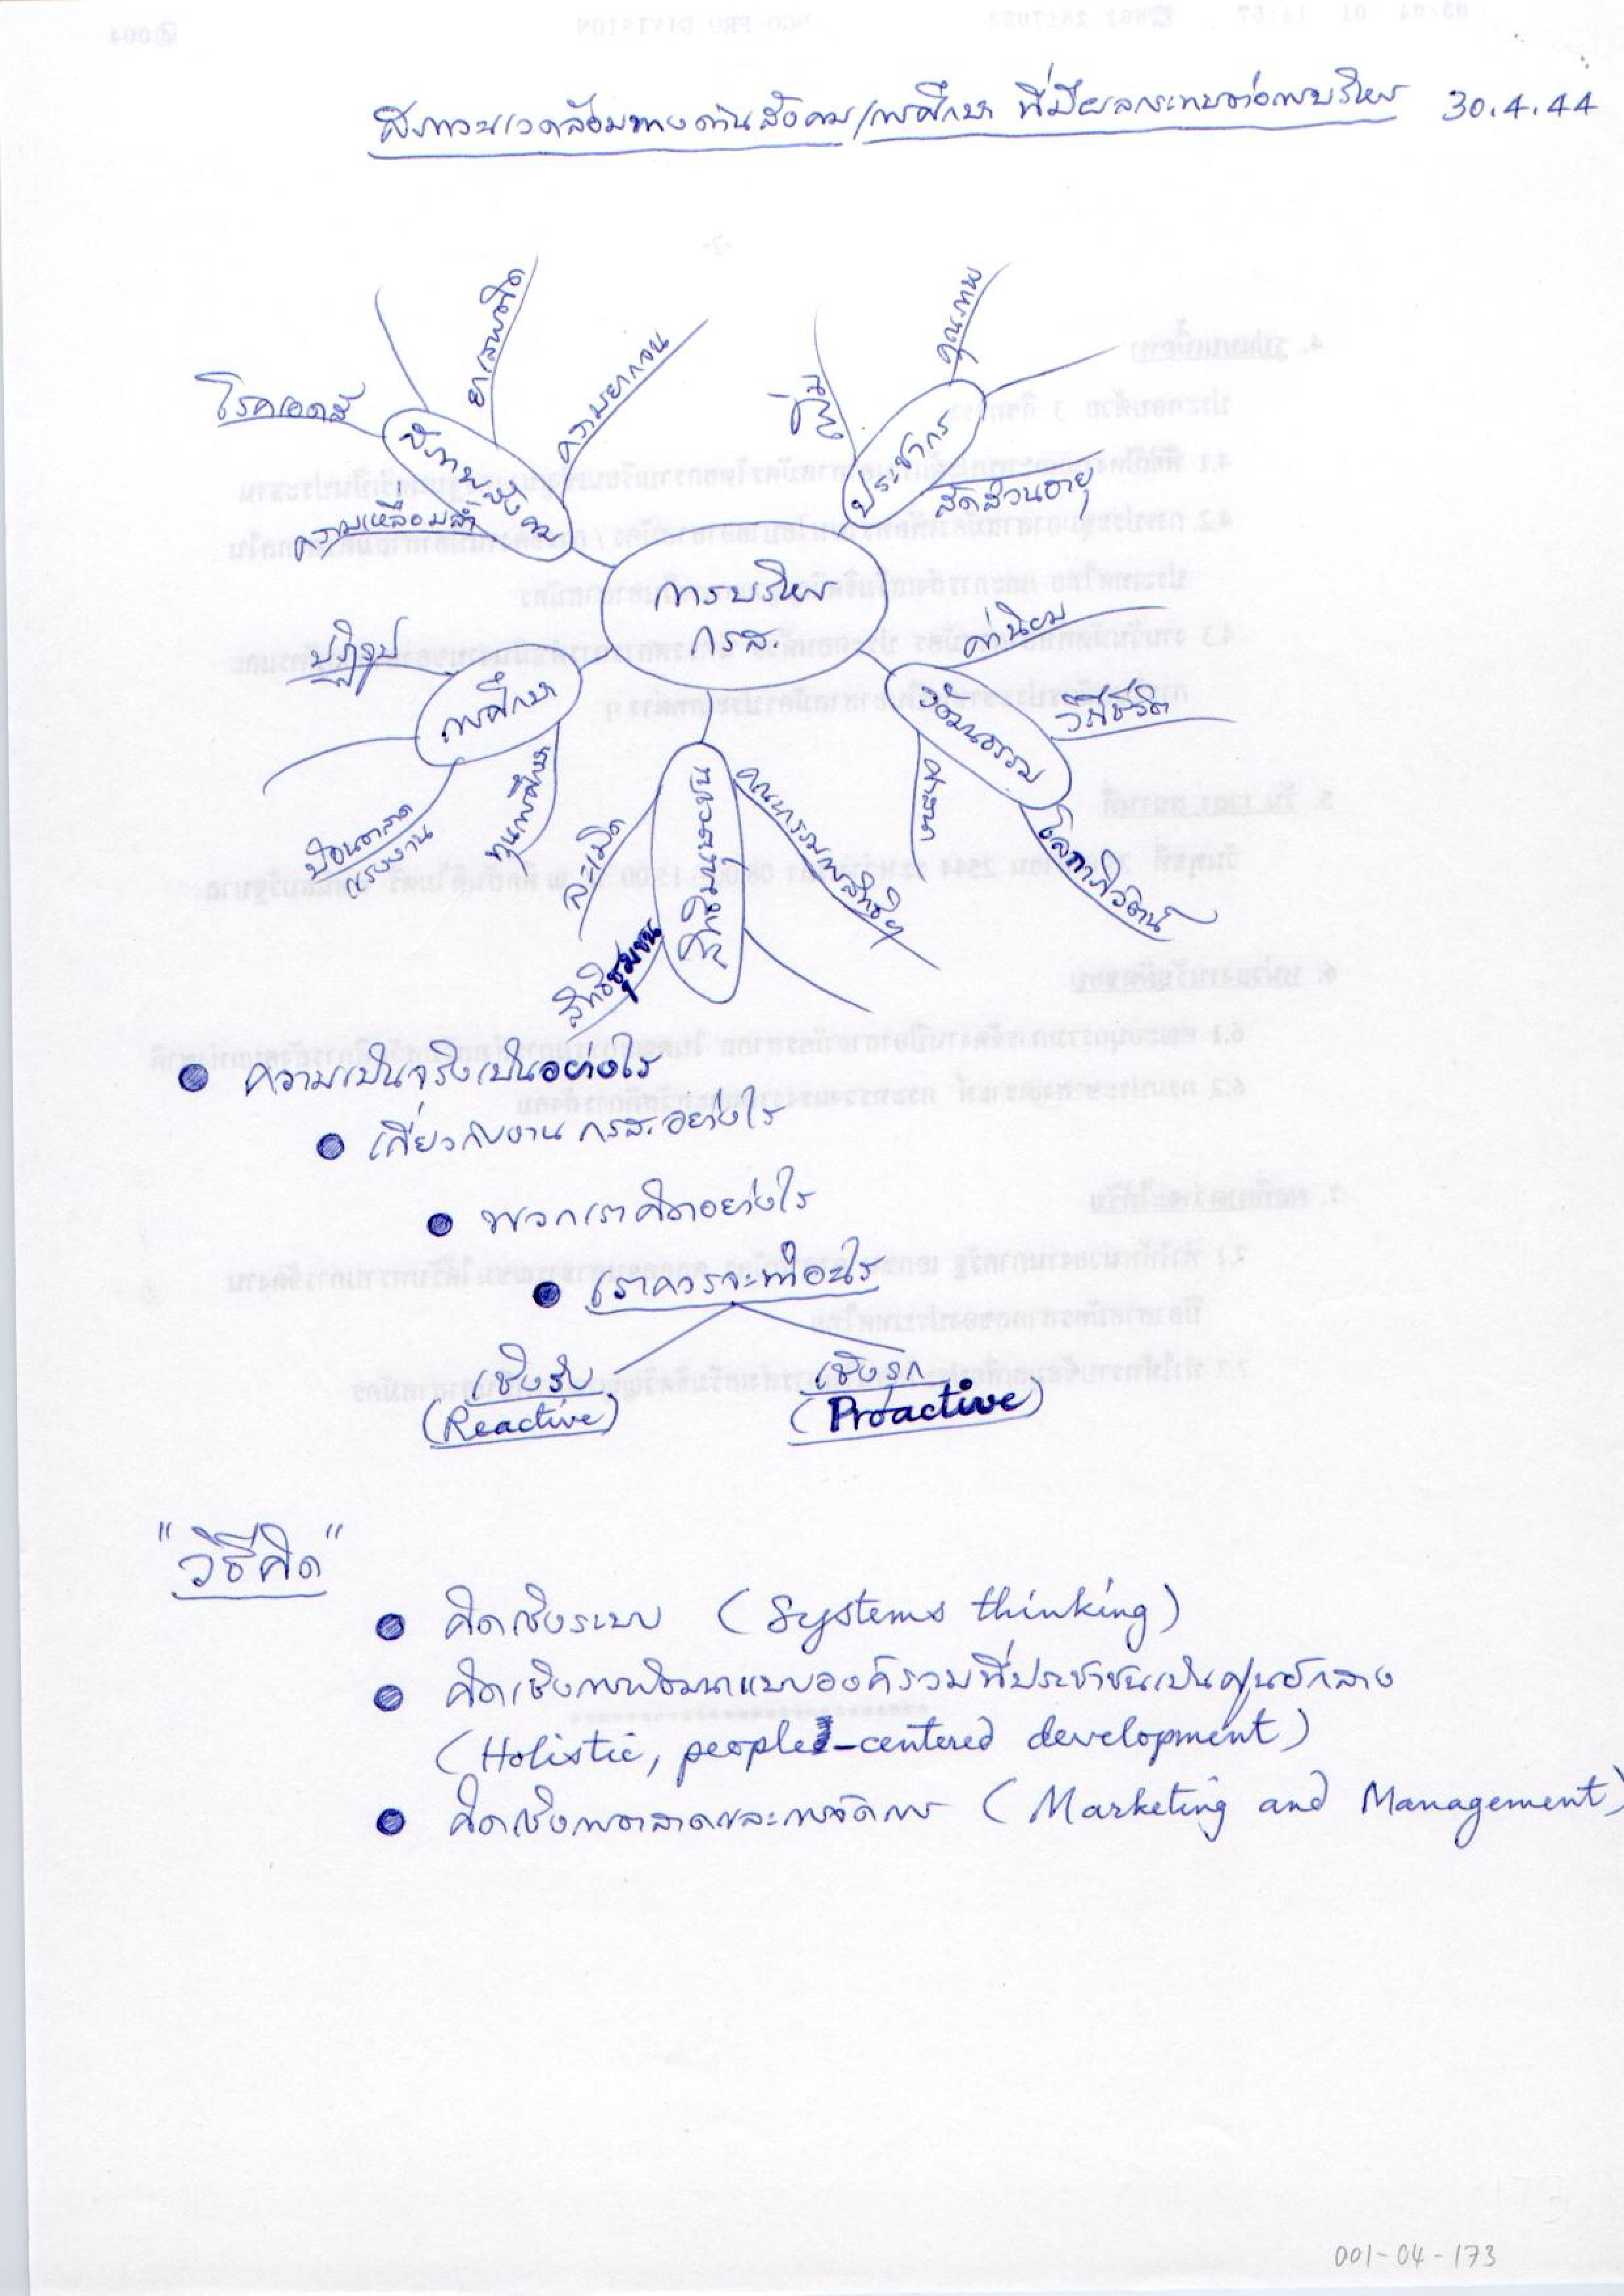 สภาวะแวดล้อมทางด้านสังคม/การศึกษา ที่มีผลกระทบต่อการบริหาร 30.4.44
ยาเสพติด
ความยากจน
โรคเอดส์
ความเหลื่อมล้ำ
คุณภาพ
ประชากร
สัดส่วนอายุ
การบริหาร
กรส.
ปฏิรูป
การศึกษา
ทุนการศึกษา
ป้อนตลาด
แรงงาน
ค่านิยม
วัฒนธรรม
วิถีชีวิต
ศาสนา
โลกาภิวัตน์
สิทธิมนุษยชน
ละเมิด
คณะกรรมการสิทธิฯ
สิทธิชุมชน
ความเป็นจริงเป็นอย่างไร
เกี่ยวกับงาน กรส. อย่างไร
พวกเราคิดอย่างไร
เราควรจะทำอะไร
เชิงรับ
(Reactive)
เชิงรุก
(Proactive)
"วิธีคิด"
คิดเชิงระบบ (Systems thinking)
คิดเชิงการพัฒนาแบบองค์รวมที่ประชาชนเป็นศูนย์กลาง
(Holistic, people-centered development)
คิดเชิงการตลาดและการจัดการ (Marketing and Management)
001-04-173